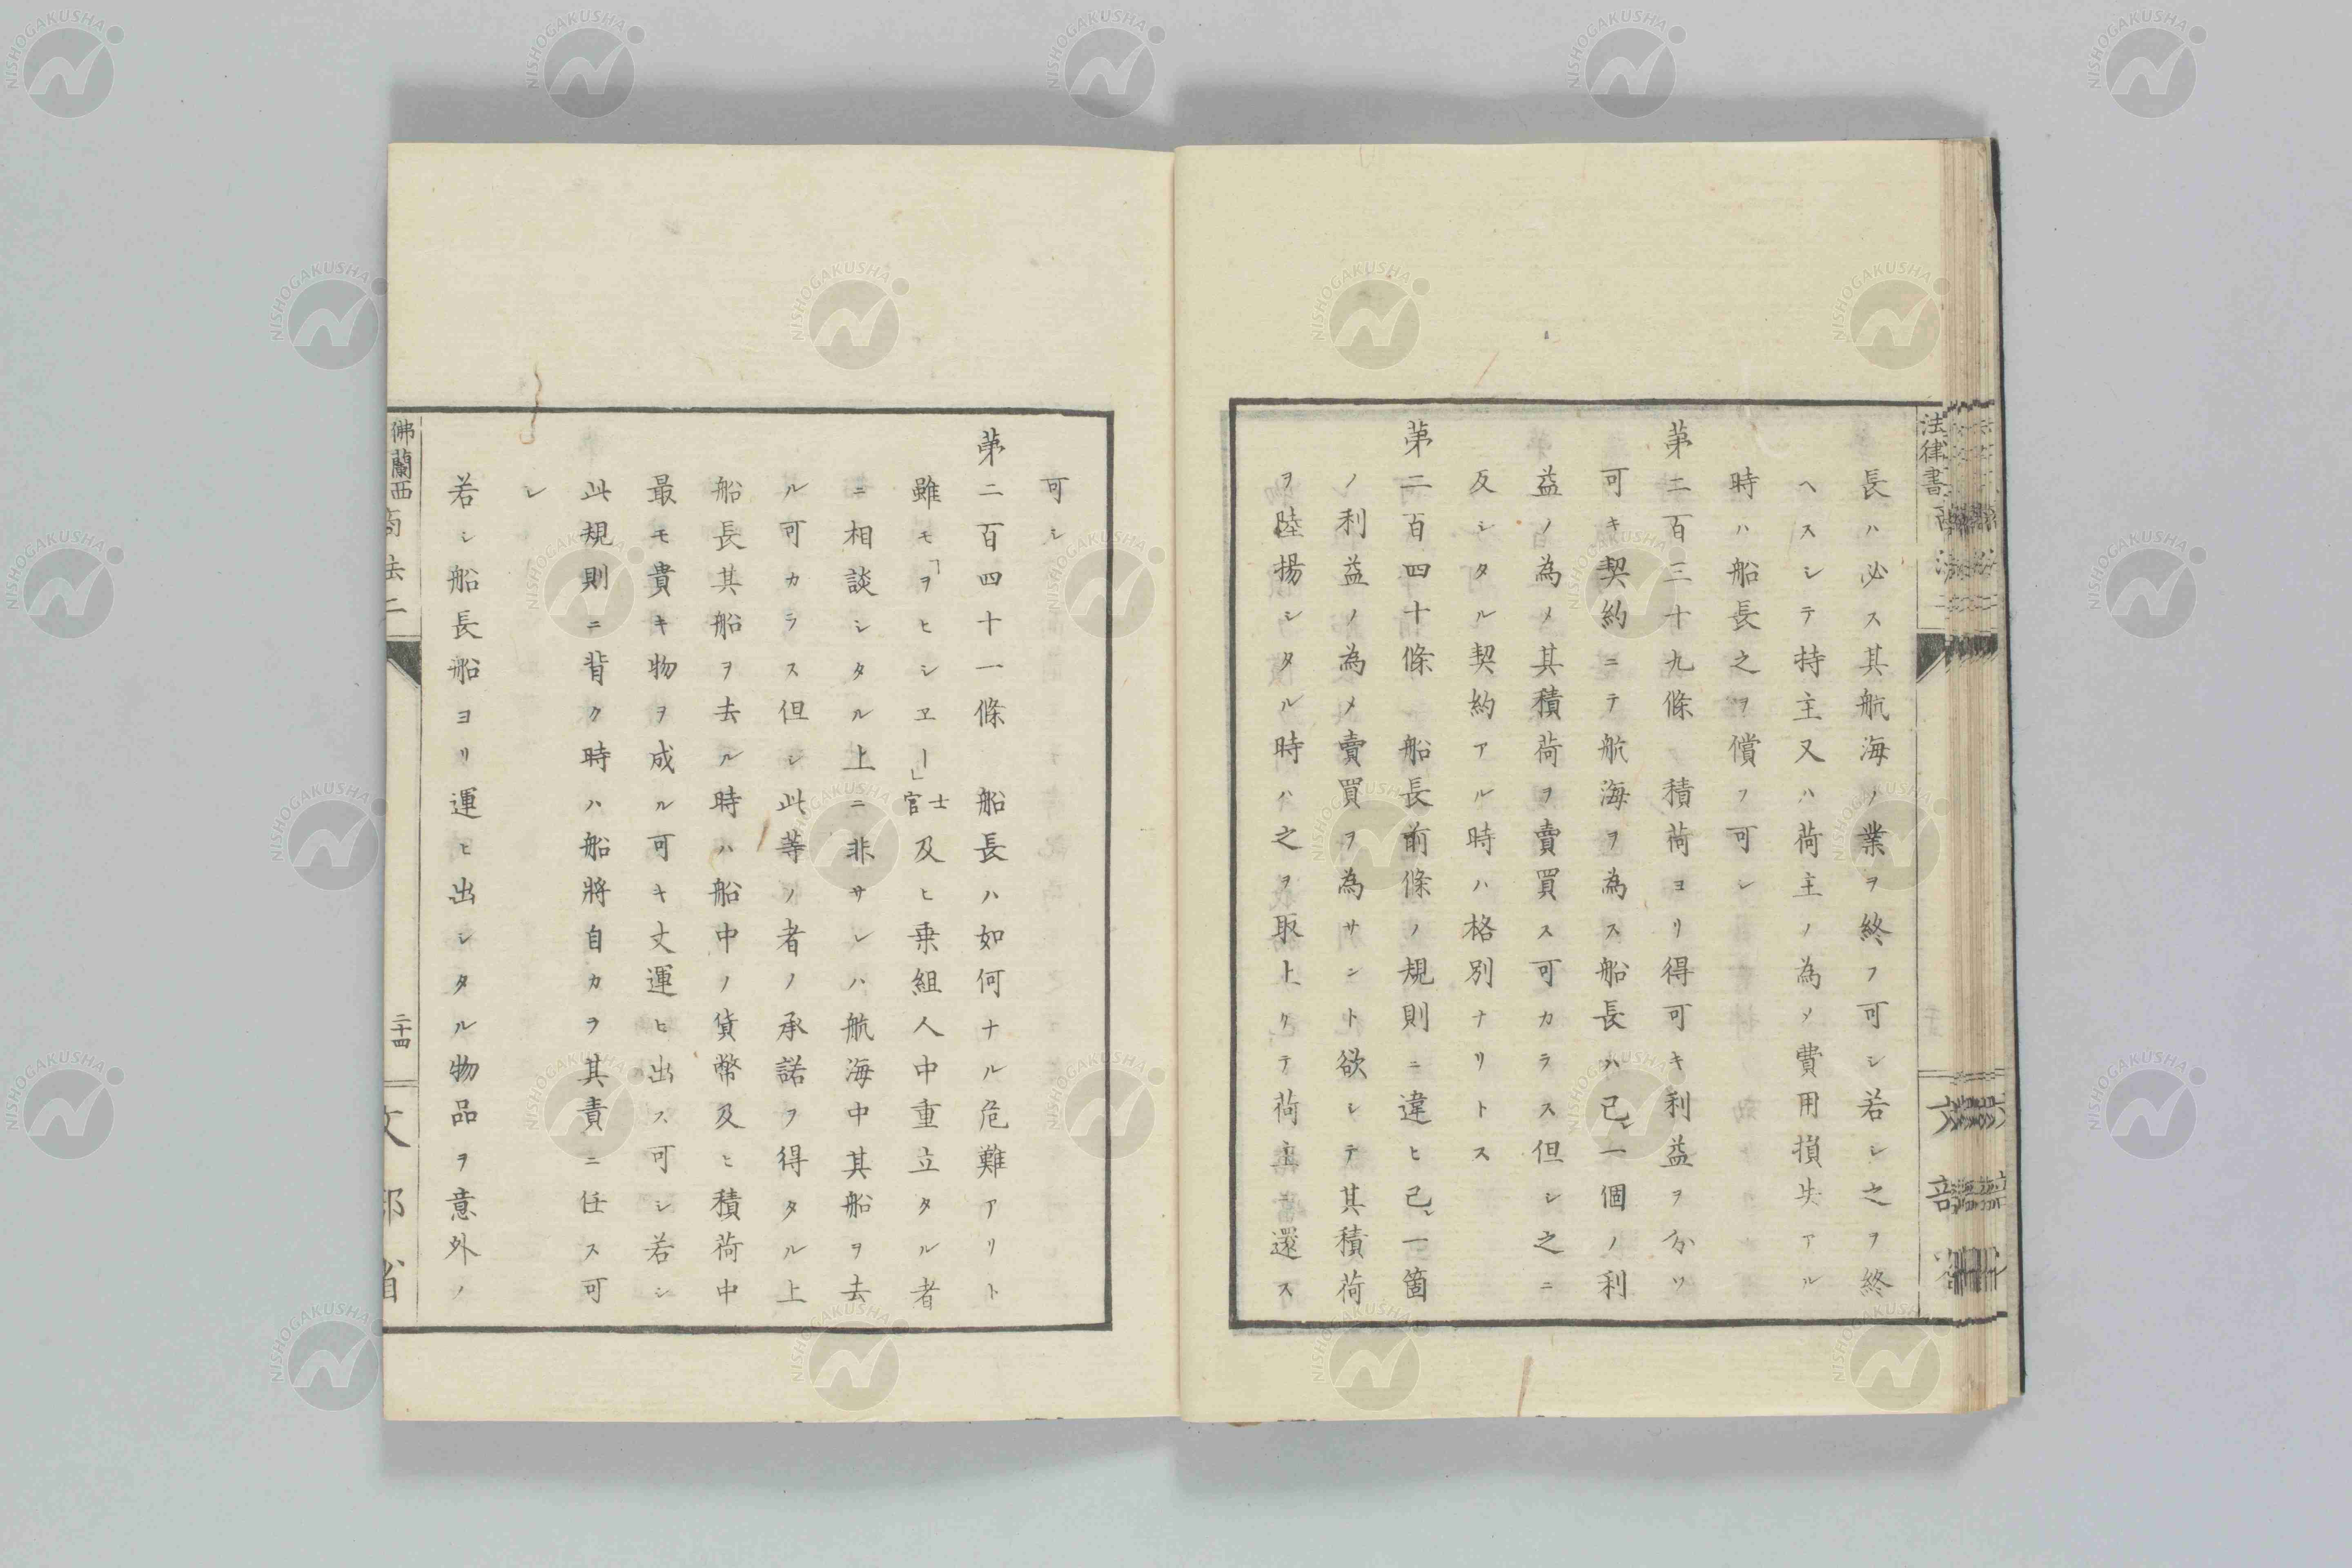 長ハ必ス其航海ノ業ヲ終フ可シ若シ之ヲ終
ヘスシテ持主又ハ荷主ノ為メ費用損失アル
時ハ船長之ヲ償フ可シ
第二百三十九條　積荷ヨリ得可キ利益ヲ分ツ
可キ契約ニテ航海ヲ為ス船長ハ己レ一個ノ利
益ノ為メ其積荷ヲ賣買ス可カラス但シ之ニ
反シタル契約アル時ハ格別ナリトス
第二百四十條　船長前條ノ規則ニ違ヒ己レ一箇
ノ利益ノ為メ賣買ヲ為サント欲シテ其積荷
ヲ陸揚シタル時ハ之ヲ取上ケテ荷主ニ還ス
可シ
第二百四十一條　船長ハ如何ナル危難アリト
雖モ「ヲヒシヱー」士官及ヒ乗組人中重立タル者
ニ相談シタル上ニ非サレハ航海中其船ヲ去
ル可カラス但シ此等ノ者ノ承諾ヲ得タル上
船長其船ヲ去ル時ハ船中ノ貨幣及ヒ積荷中
最モ貴キ物ヲ成ル可キ丈運ヒ出ス可シ若シ
此規則ニ背ク時ハ船將自カラ其責ニ任ス可
シ
若シ船長船ヨリ運ヒ出シタル物品ヲ意外ノ
佛蘭西商法二
二十四
文部省
法律書
NISHOGAKUSHA